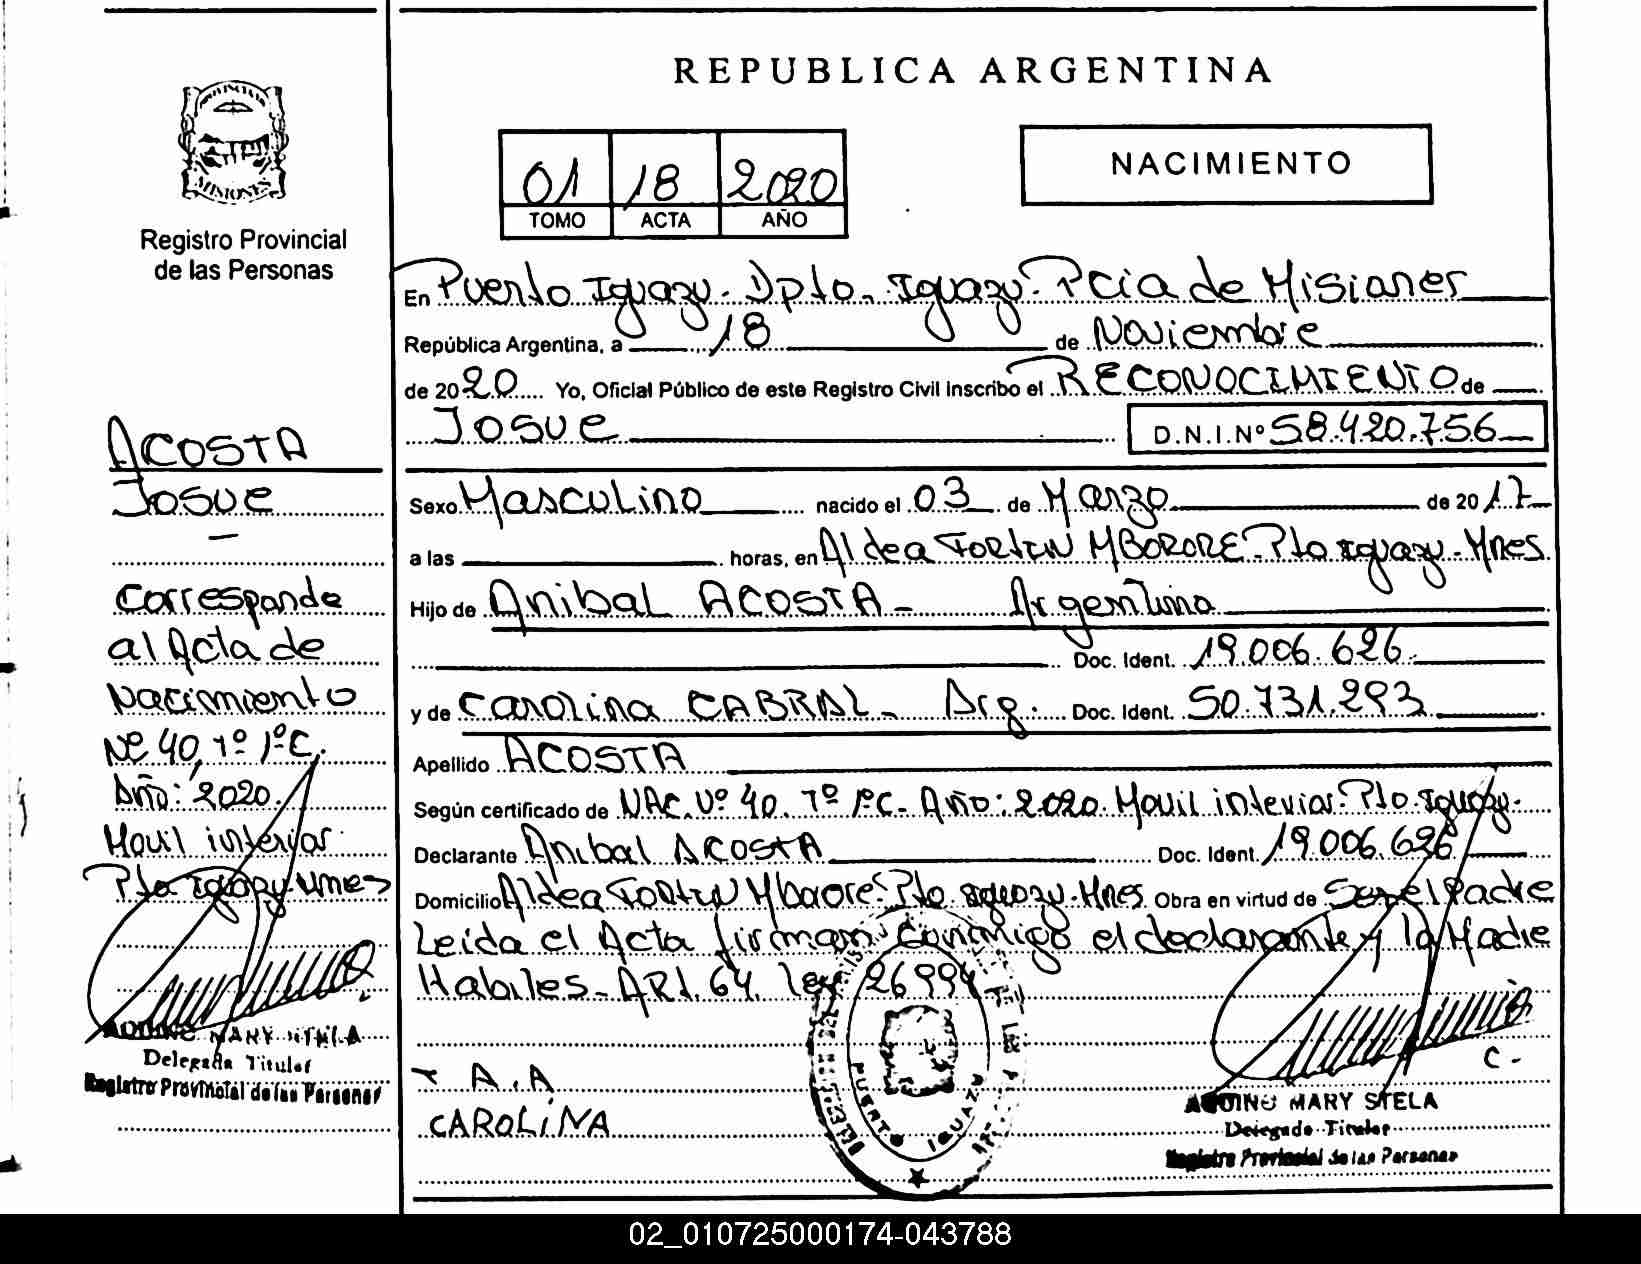 REPUBLICA ARGENTINA
MISIONES
Registro Provincial
de las Personas
01 18 2020
TOMO ACTA AÑO
NACIMIENTO
En Puerto Iguazu. Dpto. Iguazu. Pcia de Misiones
República Argentina, a 18 de Noviembre
de 2020 Yo, Oficial Público de este Registro Civil inscribo el RECONOCIMIENTO de
Josue D.N.I.Nº 58.420.756
Sexo Masculino nacido el 03 de Marzo de 2017
a las horas, en Aldea FORTIN MBORORE. Pto Iguazu. Mnes.
Hijo de Anibal ACOSTA - Argentina
Doc. Ident. 19.006.626.
y de Carolina CABRAL - Arg. Doc. Ident. 50.731.293
Apellido ACOSTA
Según certificado de NAC. Nº 40. Tº 1ºC- Año: 2020. Movil interior. Pto. Iguazu.
Declarante Anibal ACOSTA Doc. Ident. 19.006.626
Domicilio Aldea FORTIN Mbaore. Pto Iguazu. Mnes. Obra en virtud de Ser el Padre
Leida el Acta firman conmigo el declarante y la Madre
Habiles- ART. 64. ley 26994
A.A
CAROLINA
PUERTO IGUAZU
C -
AQUINO MARY STELA
Delegada Titular
Registro Provincial de las Personas
ACOSTA
Josue
Corresponde
al Acta de
Nacimiento
Nº 40, Tº 1ºC.
Año: 2020.
Movil interior
Pto Iguazu-Mnes
AQUINO MARY STELA
Delegada Titular
Registro Provincial de las Personas
02_010725000174-043788